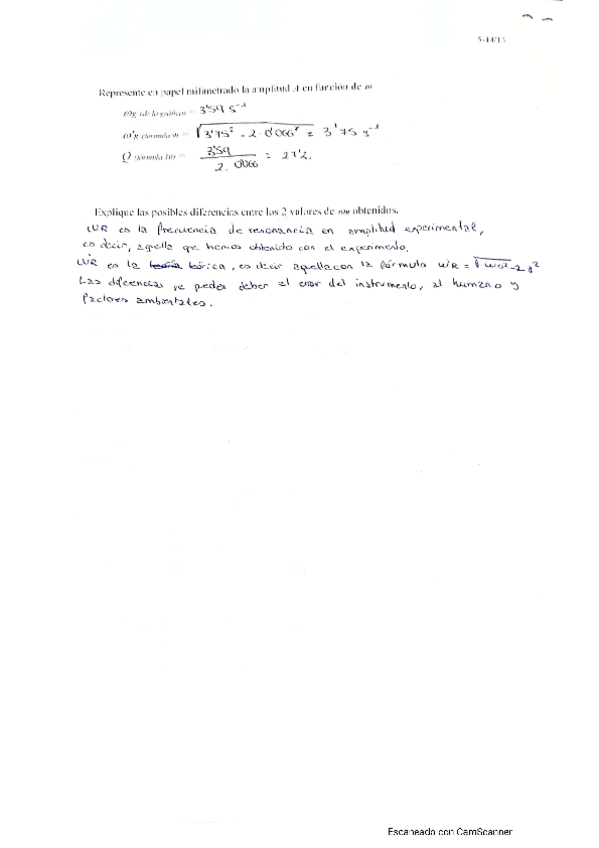 5-14/15
Represente en papel milimetrado la amplitud A en función de ω
ωR (de la gráfica) = 3'59 s⁻¹
ω'R (fórmula 9) = √3'75² - 2·0'066² = 3'75 s⁻¹
Q (fórmula 10) = 3'59 / 2·0'066 = 27'2.
Explique las posibles diferencias entre los 2 valores de ωR obtenidos.
WR es la frecuencia de resonancia en amplitud experimental,
es decir, aquella que hemos obtenido con el experimento.
W'R es la teórica, es decir aquella con la fórmula w'R = √wo²-2γ²
Las diferencias se pueden deber al error del instrumento, al humano y
factores ambientales.
Escaneado con CamScanner